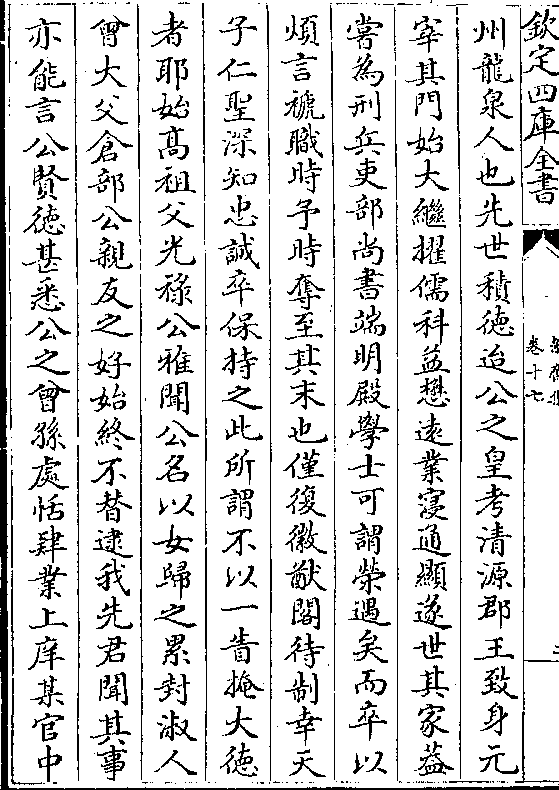 欽定四庫全書
卷十七
州龍泉人也先世積德迨公之皇考清源郡王致身元
宰其門始大繼擢儒科益懋遠業寖通顯遂世其家葢
嘗為刑兵吏部尚書端明殿學士可謂榮遇矣而卒以
煩言褫職時予時奪至其末也僅復徽猷閣待制幸天
子仁聖深知忠誠卒保持之此所謂不以一眚掩大德
者耶始髙祖父光祿公雅聞公名以女歸之累封淑人
曾大父倉部公親友之好始終不替逮我先君聞其事
亦能言公賢德甚悉公之曾孫處恬肄業上庠某官中